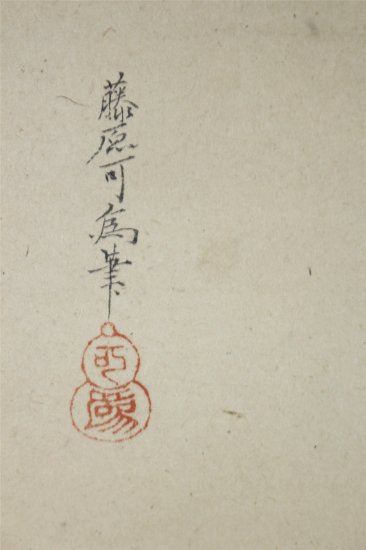 藤原可為筆
可為